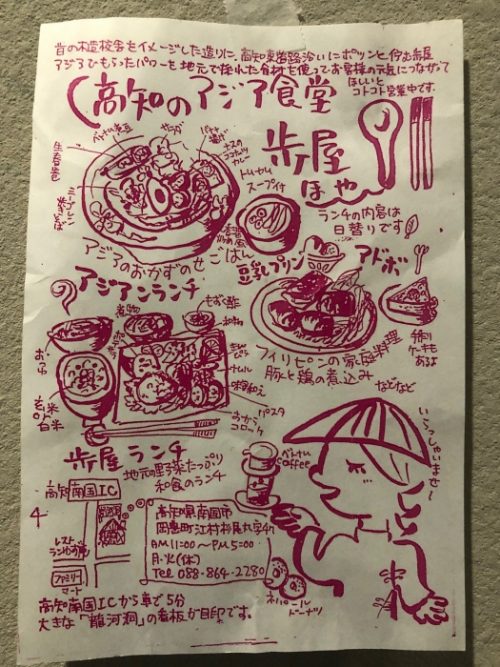 昔の木造校舎をイメージした造りに、高知東道路沿いにポツンと佇む歩屋
アジアでもらったパワーを地元で採れた食材を使ってお客様の元気につながって
ほしいと
コトコト営業中です。
高知のアジア食堂
歩屋
ほや
ランチの内容は
日替りです
生春巻
ベトナム
ココナッツ
カレー
トムヤム
スープ付
アジアのおかずのせごはん
豆乳プリン
アドボ
アジアンランチ
もずく酢
煮物
玄米
or
白米
フィリピンの家庭料理
豚と鶏の煮込み
などなど
手作り
ケーキも
あるよ
パスタ
おから
コロッケ
歩屋ランチ
地元の野菜たっぷり
和食のランチ
ベトナム
coffee
いらっしゃいませ〜
高知南国IC
レスト
ランゆず庵
ファミリー
マート
高知県南国市
岡豊町江村
AM11:00〜PM5:00
月・火(休)
Tel 088-864-2280
ネパール
ドーナツ
高知南国ICから車で5分
大きな「龍河洞」の看板が目印です。